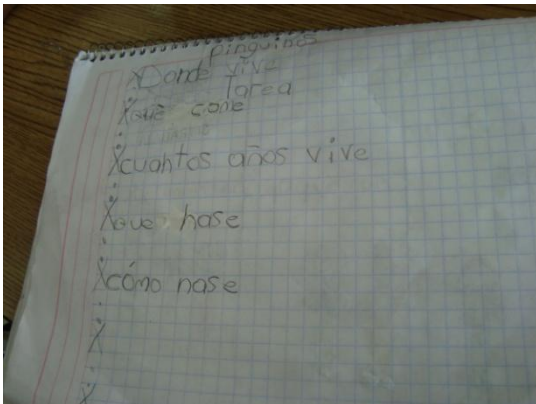 pinguinos
Donde vive
tarea
que come
cuantos años vive
que hase
cómo nase